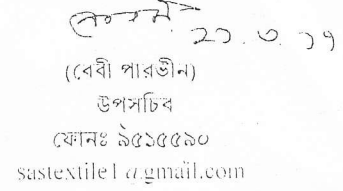 ২১.৩.১৭
(বেবী পারভীন)
উপসচিব
ফোনঃ ৯৫১৫৫৯০
sastextile1@gmail.com